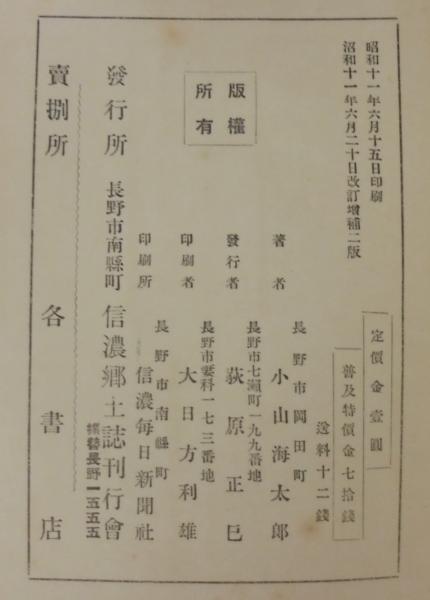 昭和十一年六月十五日印刷
沼和十一年六月二十日改訂增補二版
定價金壹圓
普及特價金七拾錢
送料十二錢
版權所有
長野市岡田町
著者 小山海太郎
長野市七瀨町一九九番地
發行者 荻原正巳
長野市妻科一七三番地
印刷者 大日方利雄
長野市南縣町
印刷所 信濃每日新聞社
發行所 長野市南縣町 信濃鄉土誌刊行會
振替長野一五五五
賣捌所 各書店